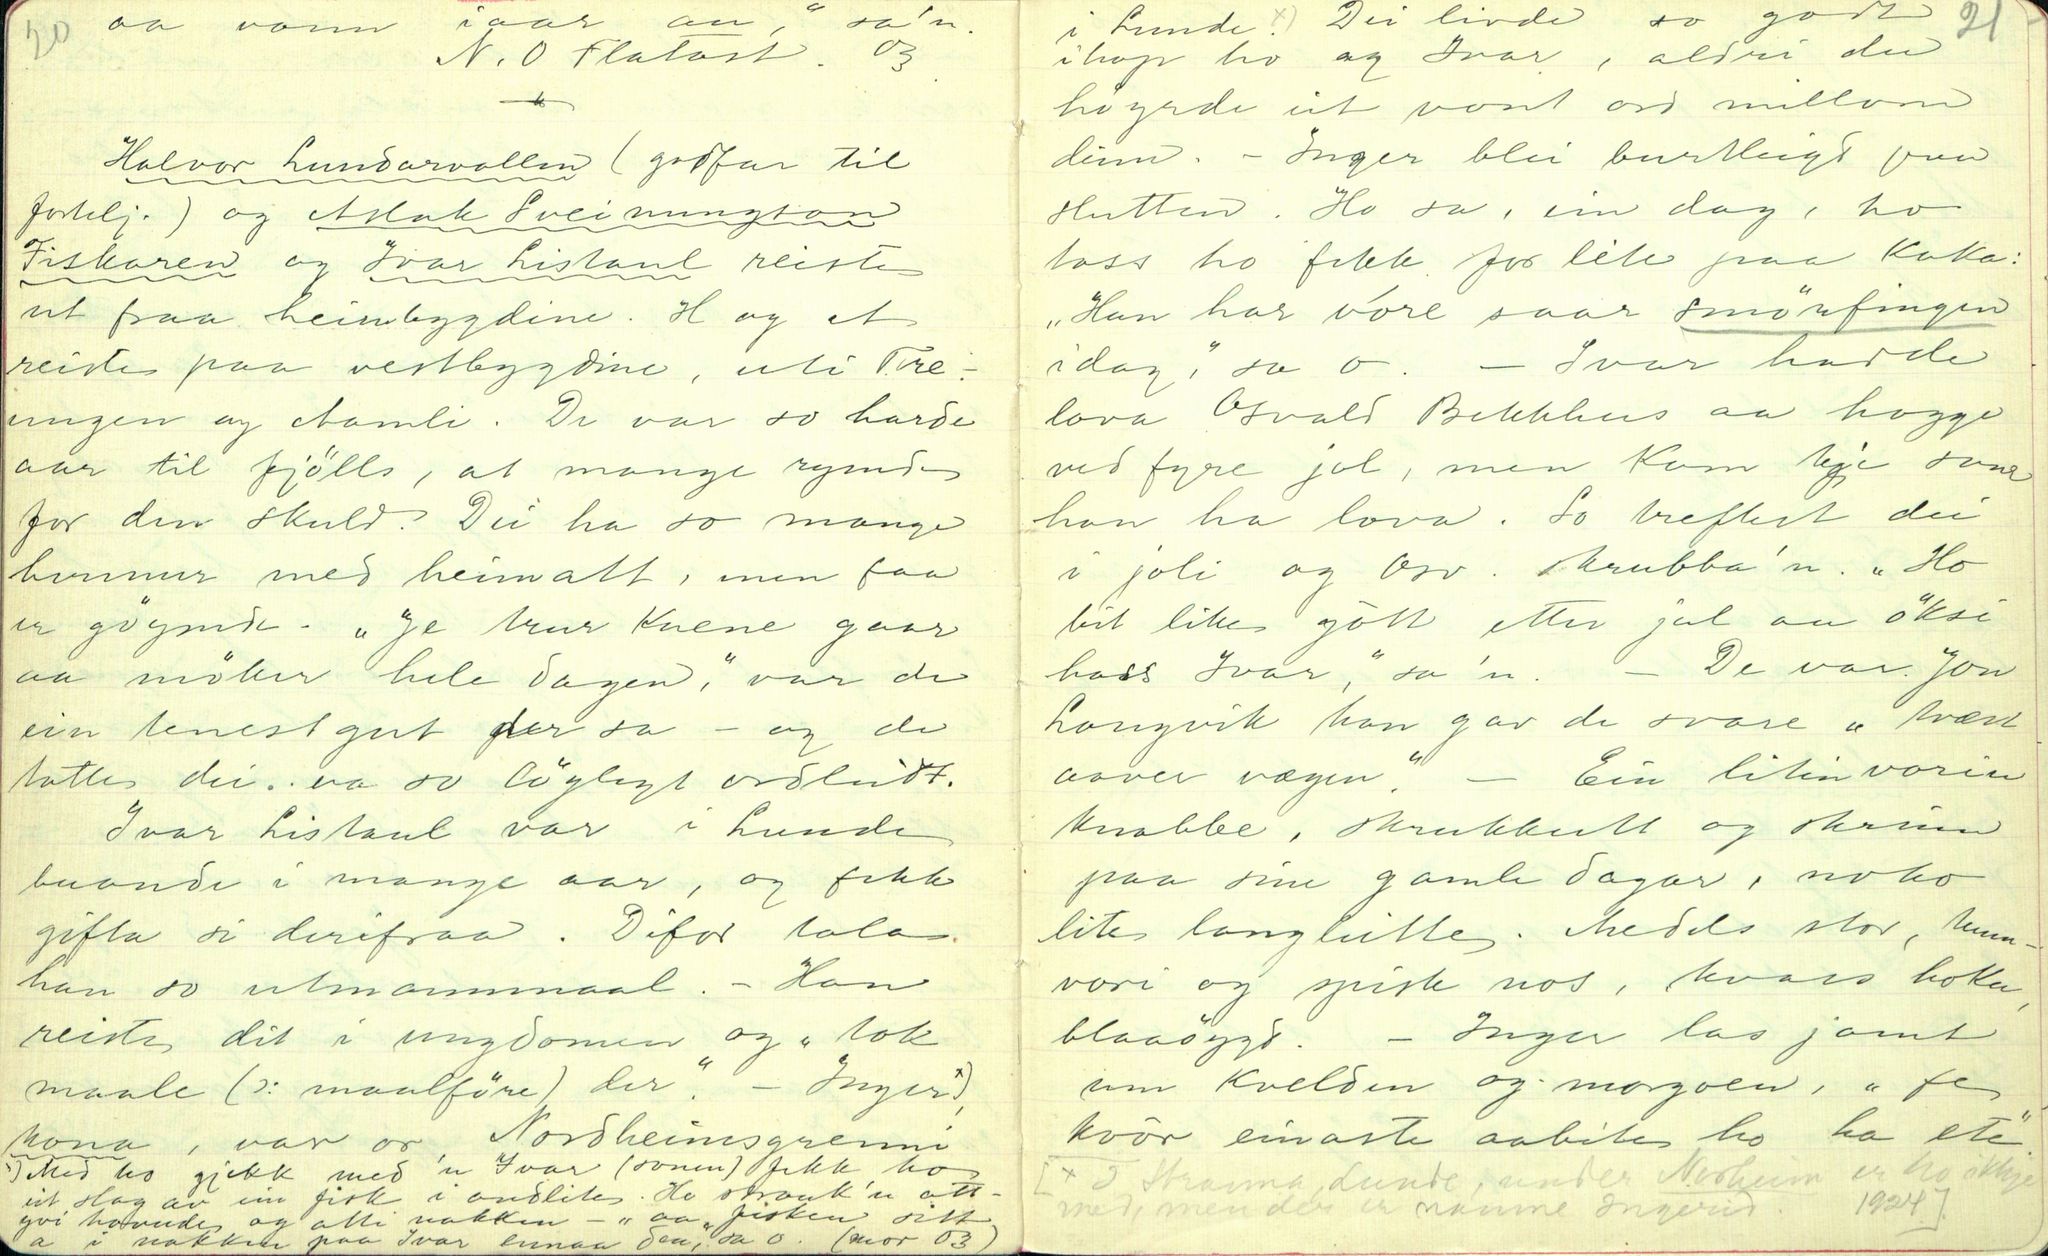 20
aa vann iaar an," sa'n.
N. O Flatast. 03
Halvor Lundarvollen (godfar til
fortelj.) og Aslak Sveinungson
Fiskaren og Ivar Listaul reiste
ut fraa heimbygdine. H og A
reiste paa vestbygdine, uti Tre-
ungen og Aamli. De var so harde
aar til fjölls, at mange rymde
for den skuld. Dei ha so mange
heimatt, men faa
er göymde. - "Je trur kuene gaar
aa möker hele dagen," var de
ein tenestgut der sa - og de
totte dei va so löglegt ordleidt.
Ivar Listaul var i Lunde
buande i mange aar, og fekk
gifta si derifraa. Difor tala
han so utmannmaal. - Han
reiste dit i ungdomen og "tok
maale (ɔ: maalföre) der." - Inger x),
kona, var or Nordheimsgrenni
x) Med ho gjekk med 'n Ivar (sonen) fekk ho
eit slag av ein fisk i andlite. Ho strauk 'n att-
yvi hovude og atti nakken - "aa fisken sitt
a i nakken paa Ivar ennaa den," sa o. (mor 03)
21
i Lunde. x) Dei livde so godt
ihop ho og Ivar, aldri du
höyrde eit vont ord millom
deim. - Inger blei burtleigd paa
slutten. Ho sa, ein dag, ho
toss ho fekk for lite paa kaka:
"Han har vóre saar smörfingen
idag," sa o. - Ivar hadde
lova Osvald Bekkhus aa hogge
ved fyre jol, men kom kje som
han ha lova. So treftest dei
i joli og Osv. skrubba'n. "Ho
bit like gött etter jol au öksi
hass Ivar," sa'n. - De var Jon
Langvik han gav de svare "tvært
aaver vægen". - Ein liten voren
knabbe, skrukkutt og skrinn
paa sine gamle dagar, noko
lite langleitte. Medels stor, tunn-
vori og spisk nos, kvass hoka,
blaaöygd. - Inger las jamt
um kvelden og morgoen, "fe
kvör einaste aabite ho ha ete"
[x) I Strauma, Lunde, under Nordheim er ho ikkje
med, men der er namne Ingerid. 1924].